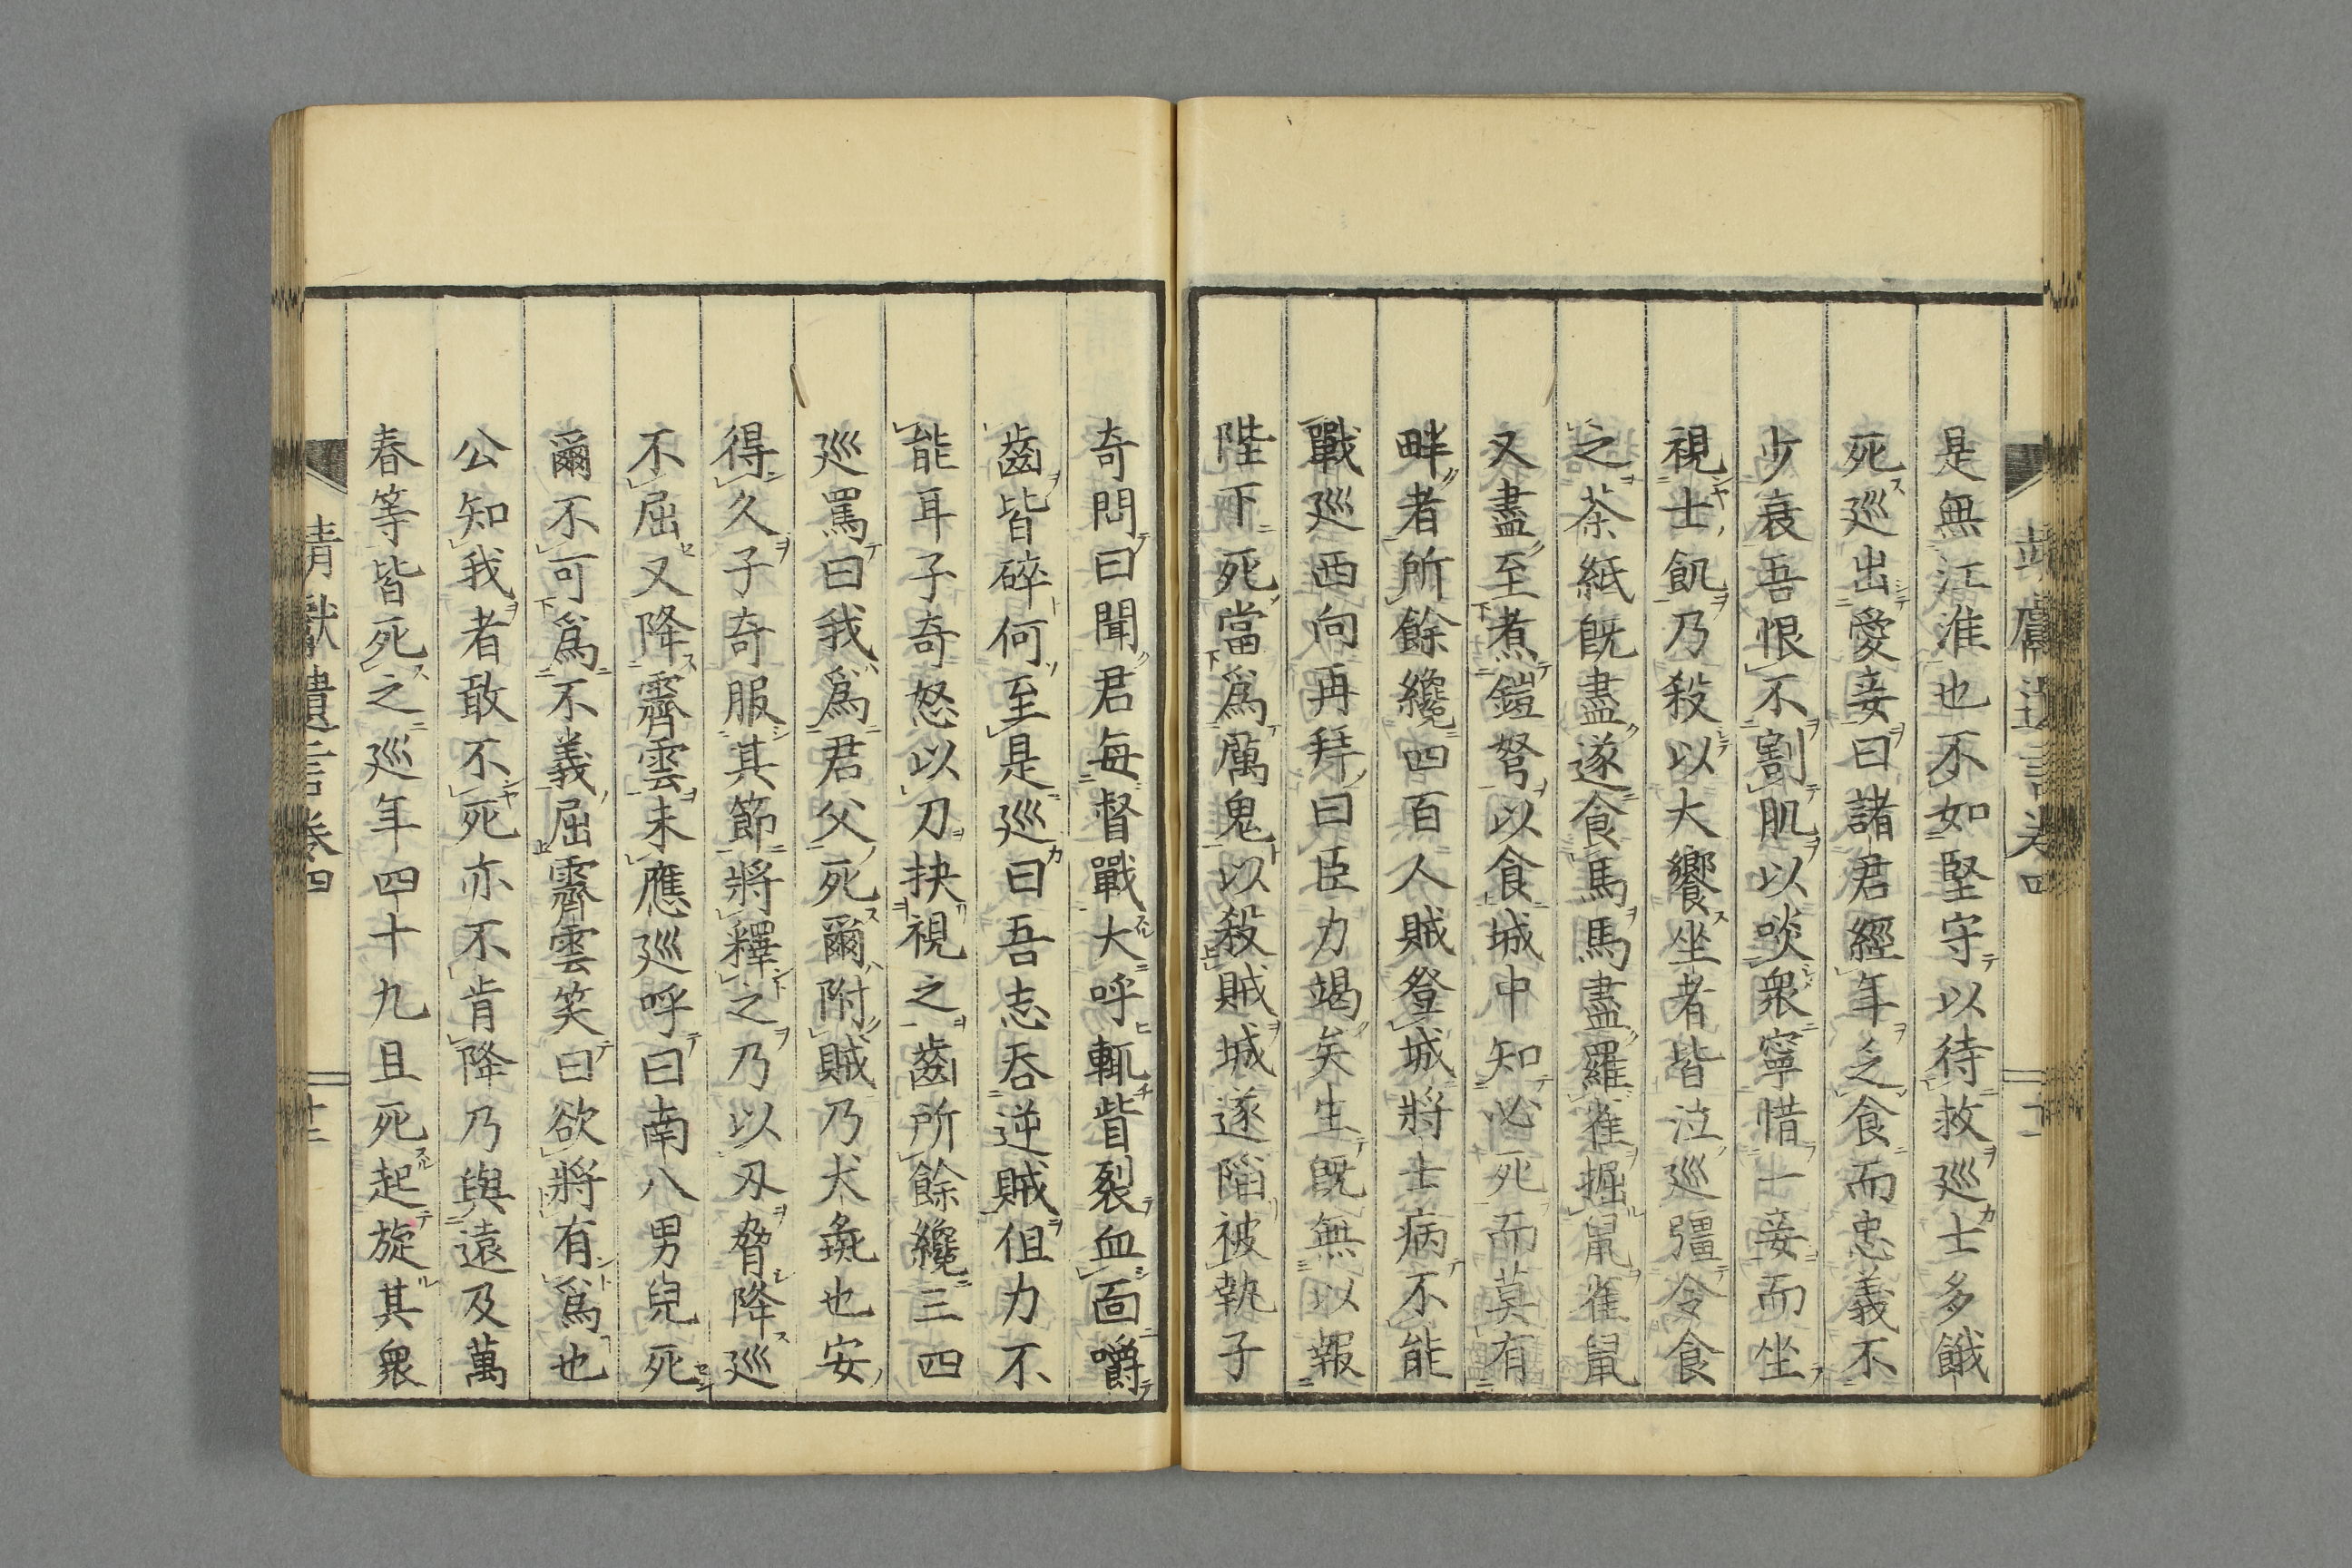 是無江淮也不如堅守以待救巡士多餓
死巡出愛妾曰諸君經年乏食而忠義不
少衰吾恨不割肌以啖衆寧惜一妾而坐
視士飢乃殺以大饗坐者皆泣巡彊令食
之茶紙既盡遂食馬馬盡羅雀掘鼠雀鼠
又盡至煮鎧弩以食城中知必死而莫有
畔者所餘纔四百人賊登城將士病不能
戰巡西向再拜曰臣力竭矣生既無以報
陛下死當爲厲鬼以殺賊城遂陷被執子
奇問曰聞君每督戰大呼輒眥裂血面嚼
齒皆碎何至是巡曰吾志吞逆賊但力不
能耳子奇怒以刀抉視之齒所餘纔三四
巡罵曰我爲君父死爾附賊乃犬彘也安
得久子奇服其節將釋之乃以刃脅降巡
不屈又降霽雲未應巡呼曰南八男兒死
爾不可爲不義屈霽雲笑曰欲將有爲也
公知我者敢不死亦不肯降乃與遠及萬
春等皆死之巡年四十九且死起旋其衆
靖獻遺言卷四